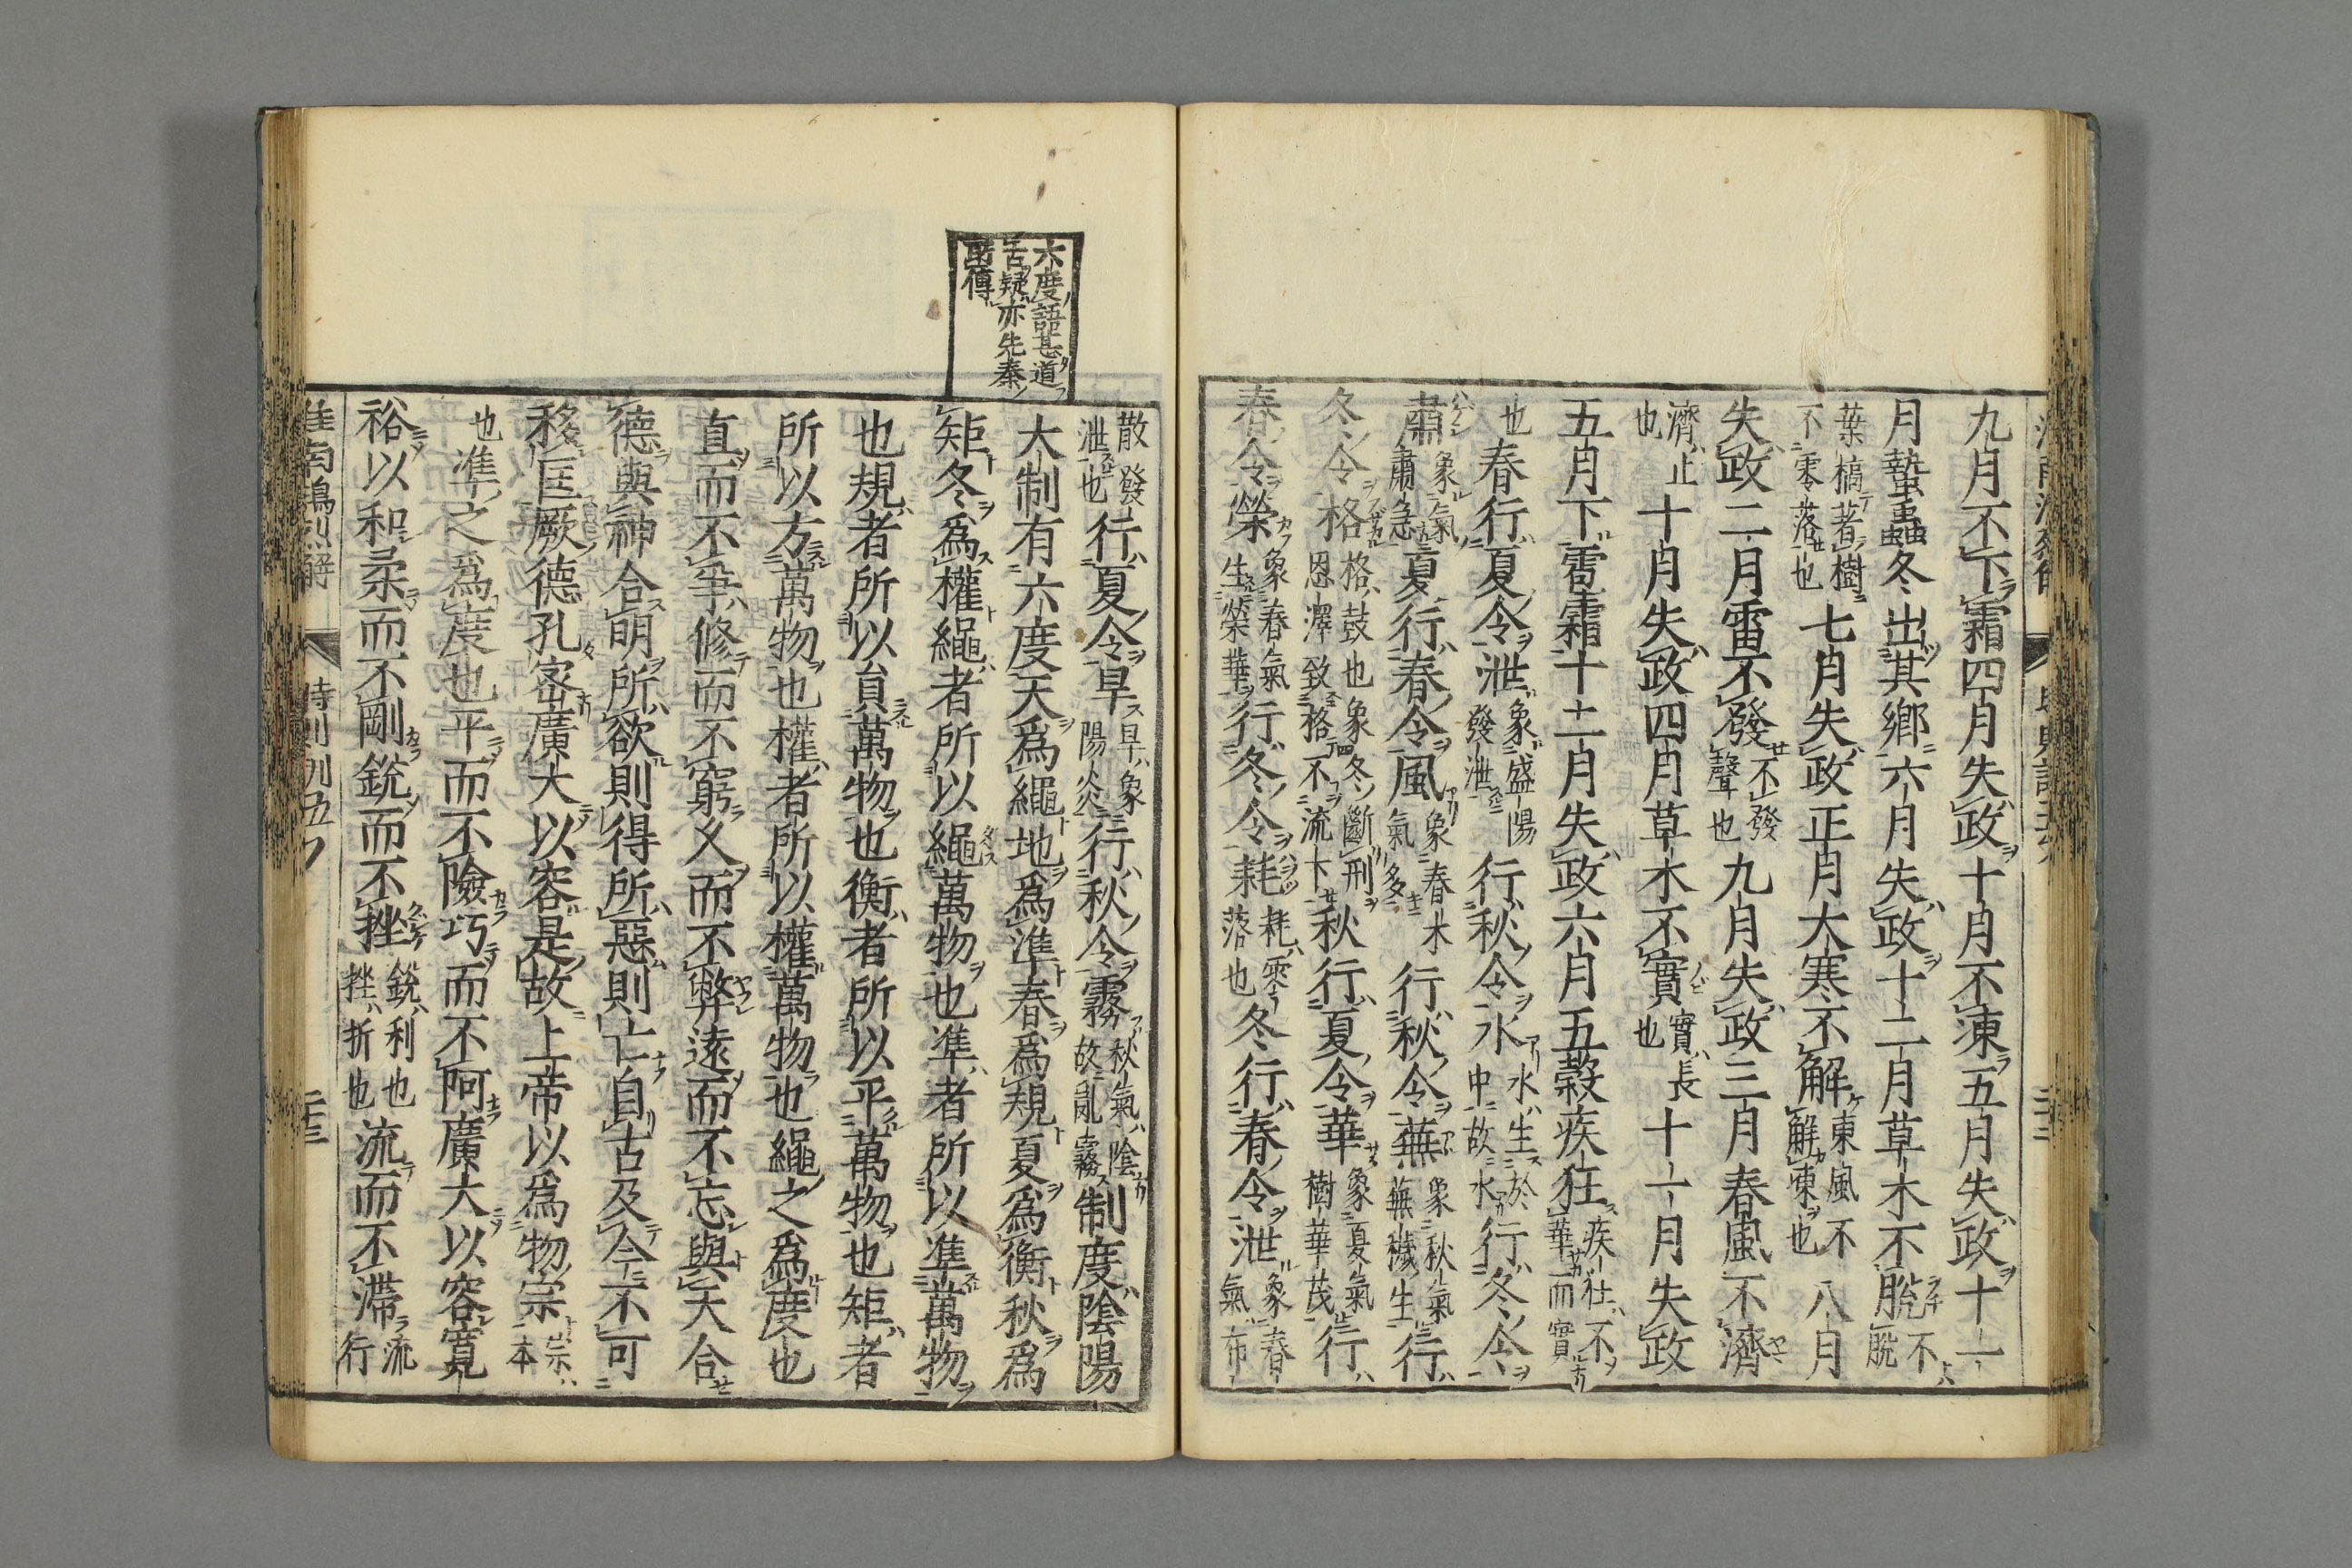 九月不下霜四月失政十月不凍五月失政十一
月蟄蟲冬出其鄉六月失政十二月草木不脫不脫
葉槁著樹不零落也七月失政正月大寒不解東風不解凍也八月
失政二月雷不發不發聲也九月失政三月春風不濟
濟止也十月失政四月草木不實實長也十一月失政
五月下雹霜十二月失政六月五穀疾狂疾狂不華而實
也春行夏令泄象盛陽發泄行秋令水水生於申故水行冬令
肅象氣肅急夏行春令風象春木氣多行秋令蕪象秋氣蕪穢生行
冬令格格鼓也象冬斷刑恩澤致格不流下秋行夏令華象夏氣樹華茂行
春令榮象春氣生榮華行冬令耗耗零落也冬行春令泄象春氣布
散發泄也行夏令旱旱象陽炎行秋令霧秋氣陰故亂霧制度陰陽
大制有六度天為繩地為準春為規夏為衡秋為
矩冬為權繩者所以繩萬物也準者所以準萬物
也規者所以員萬物也衡者所以平萬物也矩者
所以方萬物也權者所以權萬物也繩之為度也
直而不爭修而不窮久而不弊遠而不忘與天合
德與神合明所欲則得所惡則亡自古及今不可
移匡厥德孔密廣大以容是故上帝以為物宗宗本
也準之為度也平而不險巧而不阿廣大以容寬
裕以和柔而不剛銳而不挫銳利也挫折也流而不滯流行
淮南鴻烈解 時則訓五 二十三
六度語甚道
古疑亦先秦
所傳